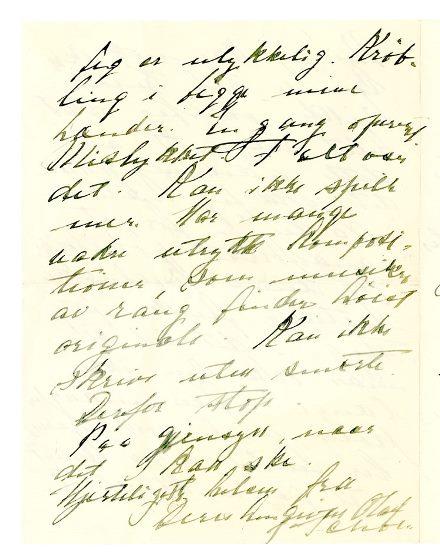 Jeg er ulykkelig. Kröb-
ling i begge mine
hænder. En gang operert
Mislykket alt ved
det. Kan ikke spille
mer. Har mange
vakre utrykte Komposi-
tioner, som musikere
av rang finder höist
originale. Kan ikke
skrive uten smerte.
Derfor stop.
Paa gjensyn, naar
det kan ske.
Hjerteligste hilsen fra
Deres hengivne Olaf